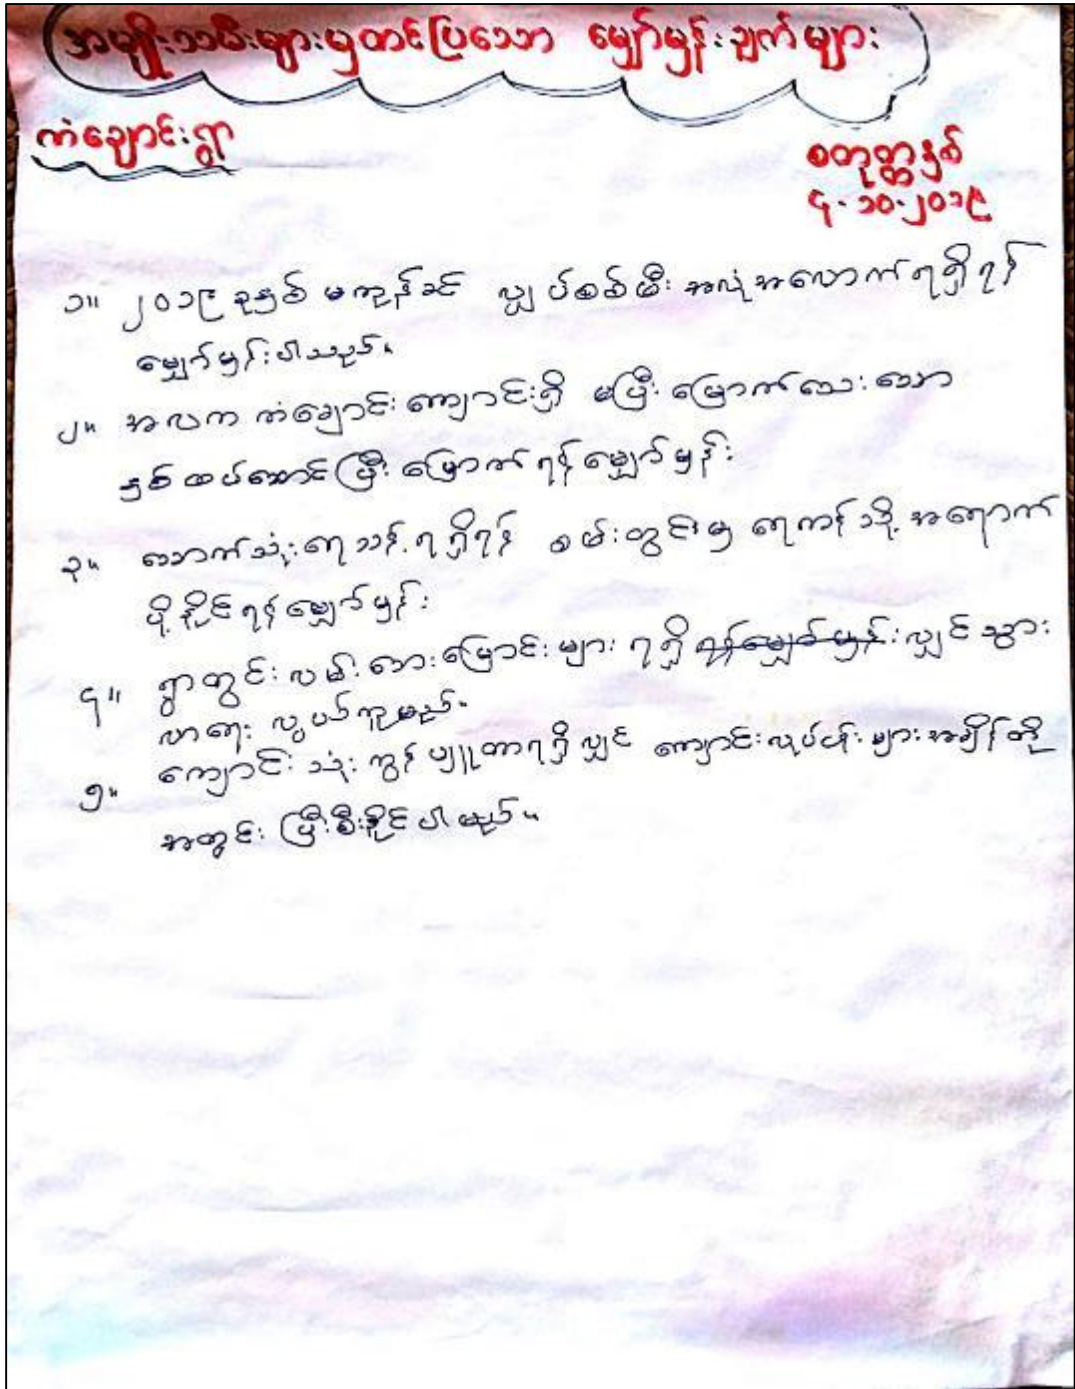 အမျိုးသမီးများမှတင်ပြသော မျှော်မှန်းချက်များ
ကံချောင်းရွာ
စတုတ္ထနှစ်
၄-၁၀-၂၀၁၉
၁။ ၂၀၁၉ ခုနှစ် မကုန်ခင် လျှပ်စစ်မီး အလုံအလောက်ရရှိရန်
မျှော်မှန်းပါသည်။
၂။ အလက ကံချောင်းကျောင်းရှိ မပြီးမြောက်သေးသော
နှစ်ထပ်ဆောင်ပြီးမြောက်ရန်မျှော်မှန်း
၃။ သောက်သုံးရေသန့်ရရှိရန် စမ်းတွင်းမှ ရေကန်သို့ အရောက်
ပို့နိုင်ရန်မျှော်မှန်း
၄။ ရွာတွင်းလမ်းဘေးမြောင်းများ ရရှိ ရန်မျှော်မှန်းလျှင် သွား
လာရေး လွယ်ကူမည်။
၅။ ကျောင်းသုံး ကွန်ပျူတာရရှိလျှင် ကျောင်းလုပ်ငန်းများအချိန်တို
အတွင်း ပြီးစီးနိုင်ပါမည်။